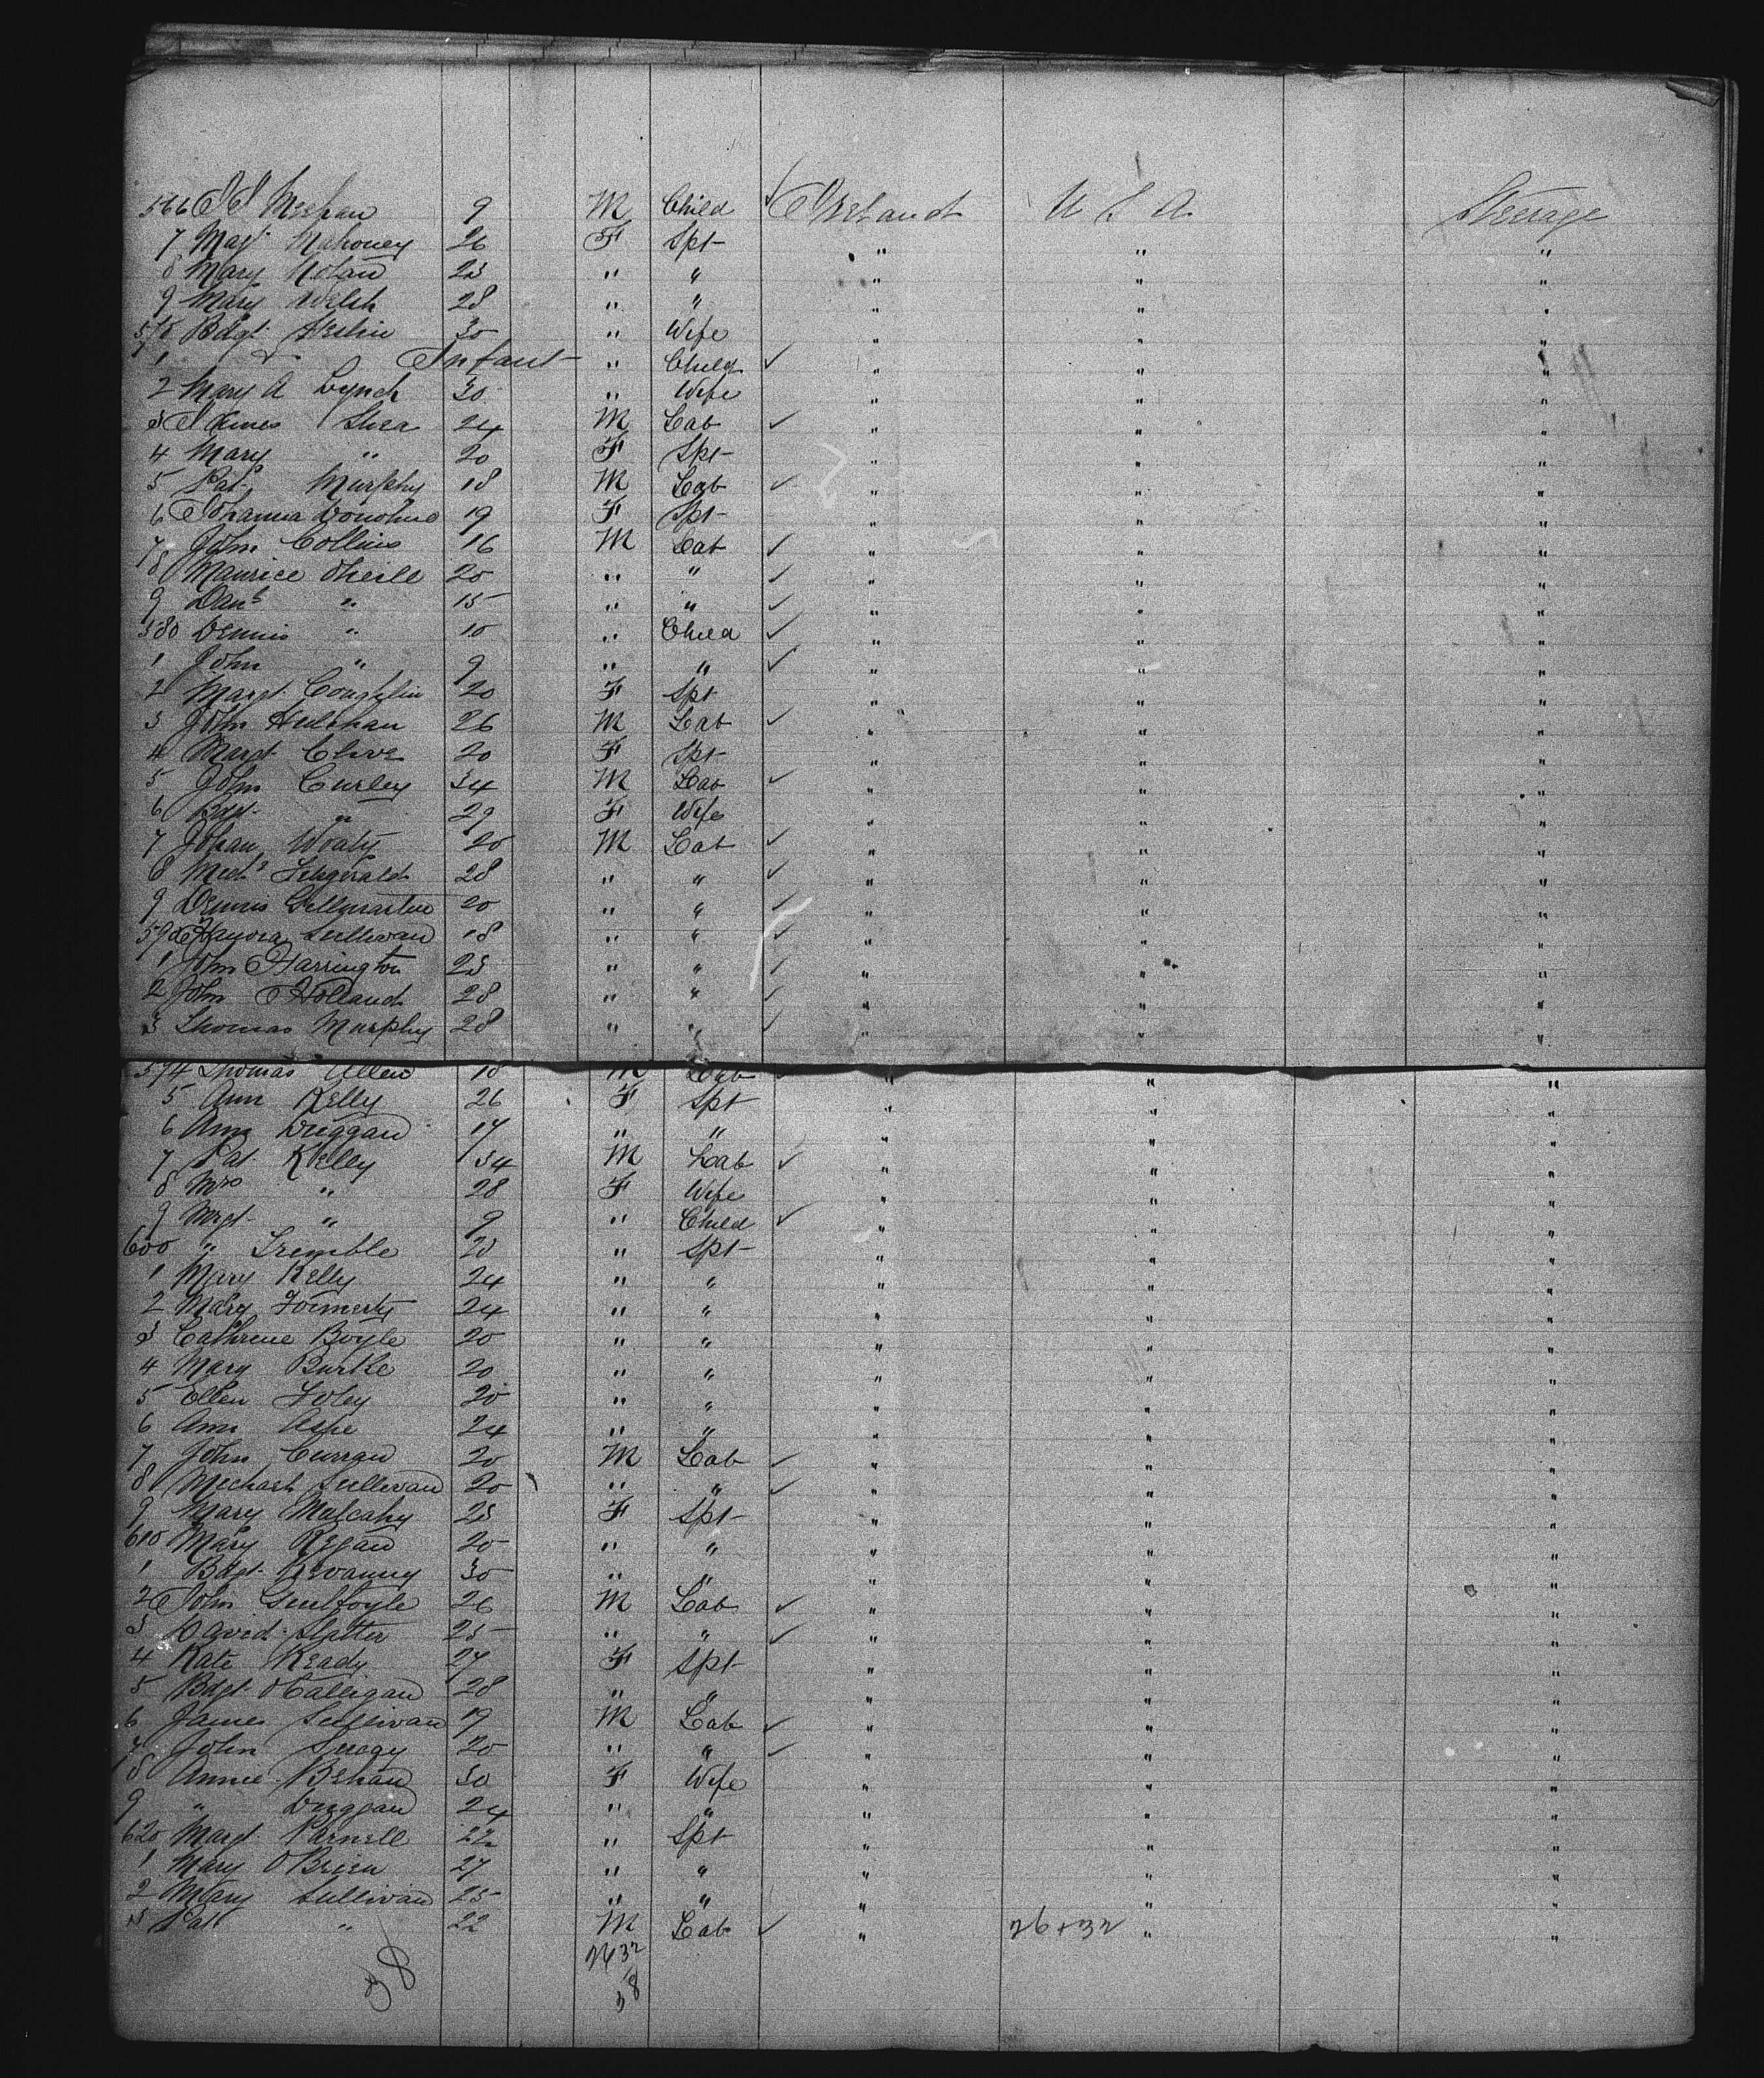 566 J J Meehan 9 M Child ✓ Ireland U S A Steerage
7 Magt Mahoney 26 F Spt " " "
8 Mary Nolan 23 " " " " "
9 Mary Welsh 28 " " " " "
570 Bdgt 30 " Wife " " "
1 " Infant " Child ✓ " " "
2 Mary A Lynch 30 " Wife " " "
3 James Shea 24 M Lab ✓ " " "
4 Mary " 20 F Spt " " "
5 Pat Murphy 18 M Lab ✓ " " "
6 Johanna Donohue 19 F Spt " " "
7 John Collins 16 M Lab ✓ " " "
8 Maurice ONeill 20 " " ✓ " " "
9 Danl " 15 " " ✓ " " "
580 Dennis " 10 " Child ✓ " " "
1 John " 9 " " ✓ " " "
2 Margt Coughlin 20 F Spt " " "
3 John 26 M Lab ✓ " " "
4 Margt 20 F Spt " " "
5 John Curley 34 M Lab ✓ " " "
6 Bdgt " 29 F Wife " " "
7 20 M Lab ✓ " " "
8 Michl Fitzgerald 28 " " ✓ " " "
9 Dennis Gillmartin 20 " " ✓ " " "
590 Hanora Sullivan 18 " " ✓ " " "
1 John Harrington 23 " " ✓ " " "
2 John Holland 28 " " ✓ " " "
3 Thomas Murphy 28 " " ✓ " " "
594 Thomas Allen 18 M Lab ✓ " " "
5 Ann Kelly 26 F Spt " " "
6 Ann Duggan 17 " " " " "
7 Pat Kelly 34 M Lab ✓ " " "
8 Mrs " 28 F Wife " " "
9 Mrgt " 9 " Child ✓ " " "
600 " Tremble 20 " Spt " " "
1 Mary Kelly 24 " " " " "
2 Mary 24 " " " " "
3 Cathrene Boyle 20 " " " " "
4 Mary Burke 20 " " " " "
5 Ellen Foley 20 " " " " "
6 Ann Ashe 24 " " " " "
7 John Curran 20 M Lab ✓ " " "
8 Michael Sullivan 20 " " ✓ " " "
9 Mary Mulcahy 23 F Spt " " "
610 Mary Regan 20 " " " " "
1 Bdgt Kevanny 30 " " " " "
2 John Guilfoyle 26 M Lab ✓ " " "
3 David Slatter 25 " " ✓ " " "
4 Kate Keady 27 F Spt " " "
5 Bdgt OCalligan 28 " " " " "
6 James Sullivan 19 M Lab ✓ " " "
7 John 20 " " ✓ " " "
8 Annie Behan 30 F Wife " " "
9 " Duggan 24 " " " " "
620 Margt Parnell 22 " Spt " " "
1 Mary OBrien 27 " " " " "
2 Mary Sullivan 25 " " " " "
3 Pat " 22 M Lab ✓ " 26+32 " "
26 32
58
58